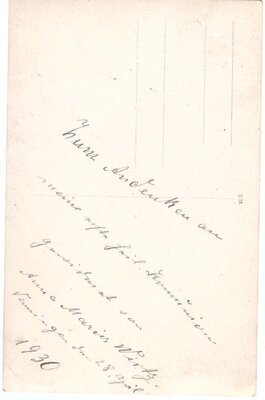 Zum Andenken an
meine erste heil. Kommunion
gewidmet von
Anna Maria
den 28. April
1930